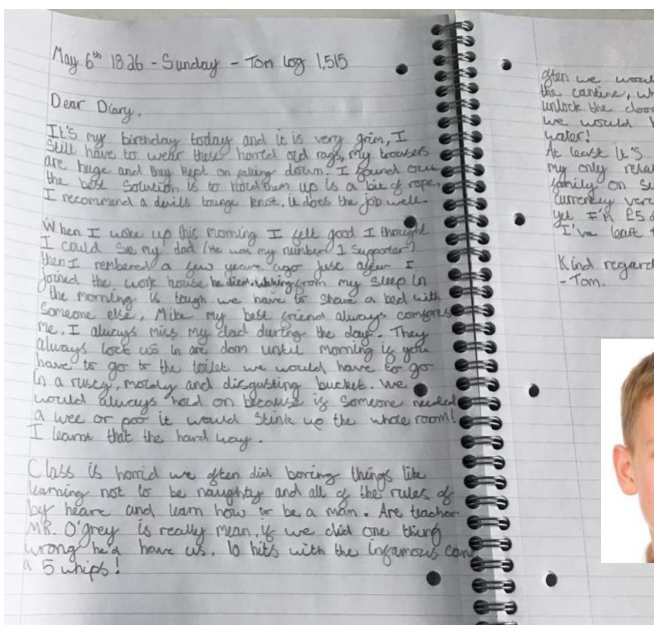 May 6th 1826 - Sunday - Tom log 1,515
Dear Diary,
It's my birthday today and it is very grim, I
still have to wear these horrid old rags, my trousers
are huge and they kept on falling down. I found out
the best solution is to hold them up is a bit of rope,
I recommend a devils tounge knot, it does the job well
When I woke up this morning I felt good I thought
I could see my dad (He was my number 1 supporter)
then I rembered a few years ago just after I
joined the work house he died. from my sleep in
the morning is tough we have to share a bed with
someone else, Mike my best friend always comforts
me, I always miss my dad during the day. They
always lock us in are dorm until morning if you
have to go to the toilet we would have to go
in a rusty, moldy and disgusting bucket. We
would always hold on because if someone needed
a wee or poo it would stink up the whole room!
I learnt that the hard way.
Class is horrid we often did boring things like
learning not to be naughty and all of the rules of
by heart and learn how to be a man. Are teacher
MR. O'grey is really mean, if we did one thing
wrong he'd have us, 10 hits with the infamous cane
a 5 whips!
often we woul
the cantine, wh
unlock the door
we would h
water!
At least it's
my only rela
family on su
currency ver
yet I'm £5
I've beat t
Kind regard
- Tom.